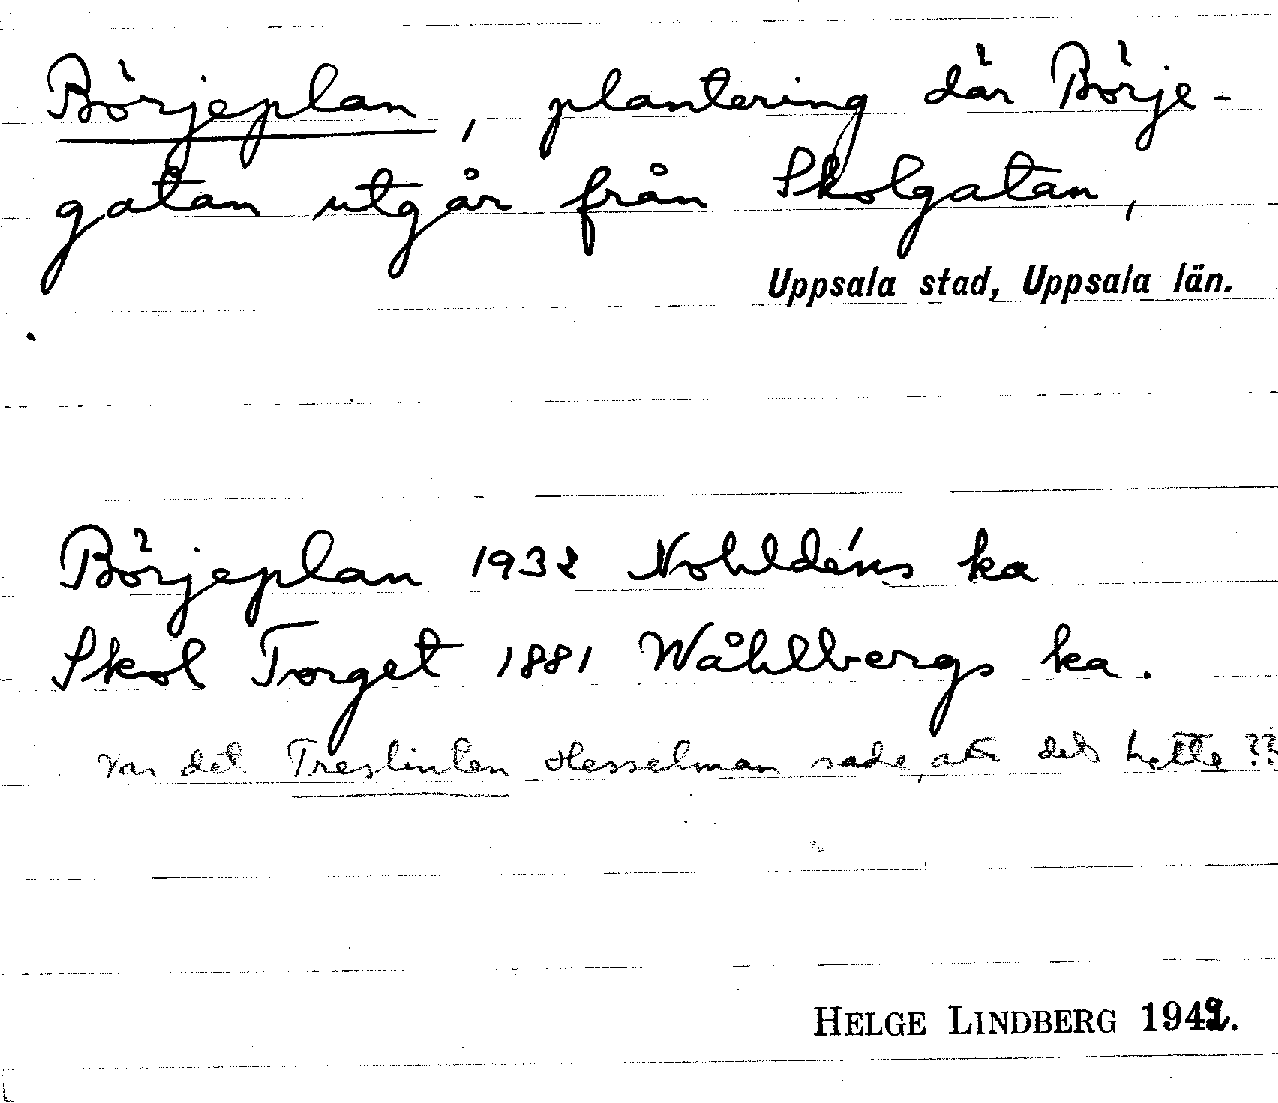 Börjeplan, plantering där Börje-
gatan utgår från Skolgatan,
Uppsala stad, Uppsala län.
Börjeplan 1932 Nohldéns ka
Skol Torget 1881 Wåhlbergs ka.
var det Hesselman sade, att det hette??
HELGE LINDBERG 1942.